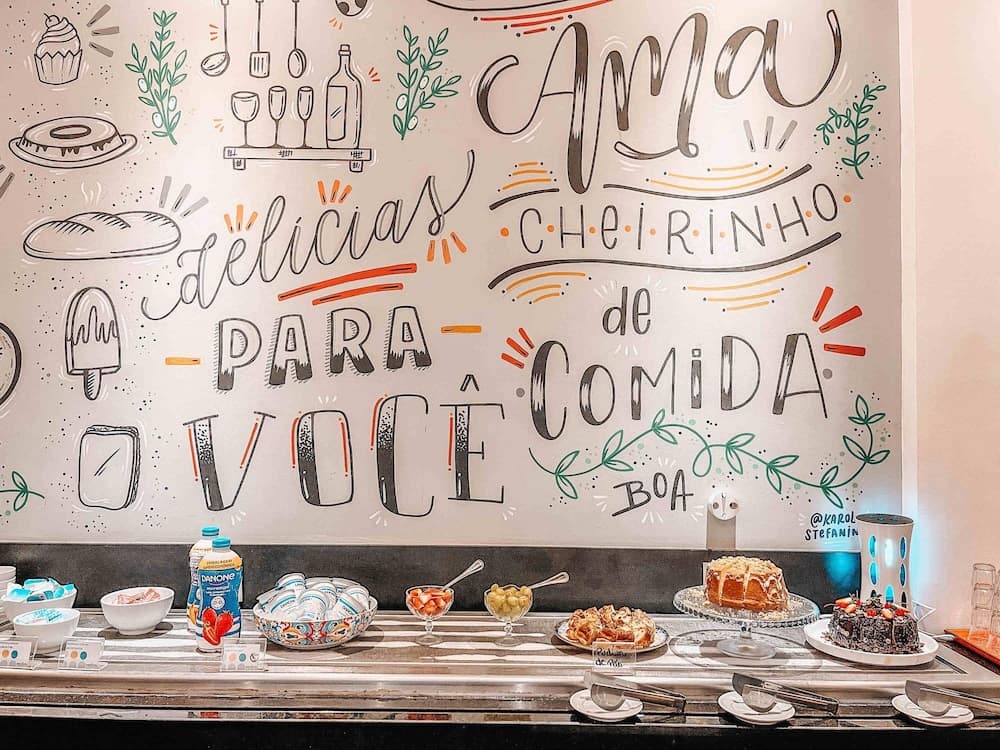 delícias
PARA
VOCÊ
AMA
CHEIRINHO
de
COMIDA
BOA
@KAROL
STEFANIN
DANONE